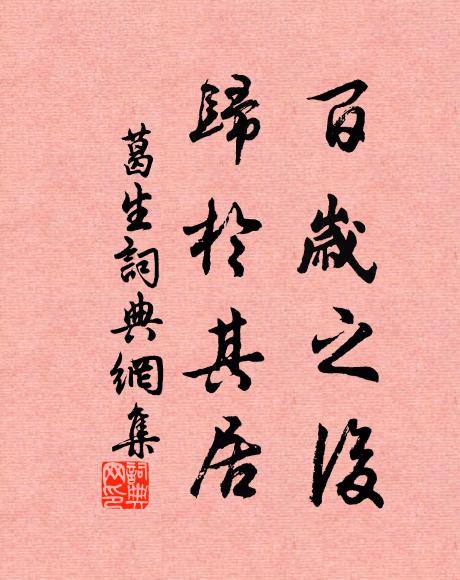 百歲之後
歸於其居
葛生詞典網集
詞典網印